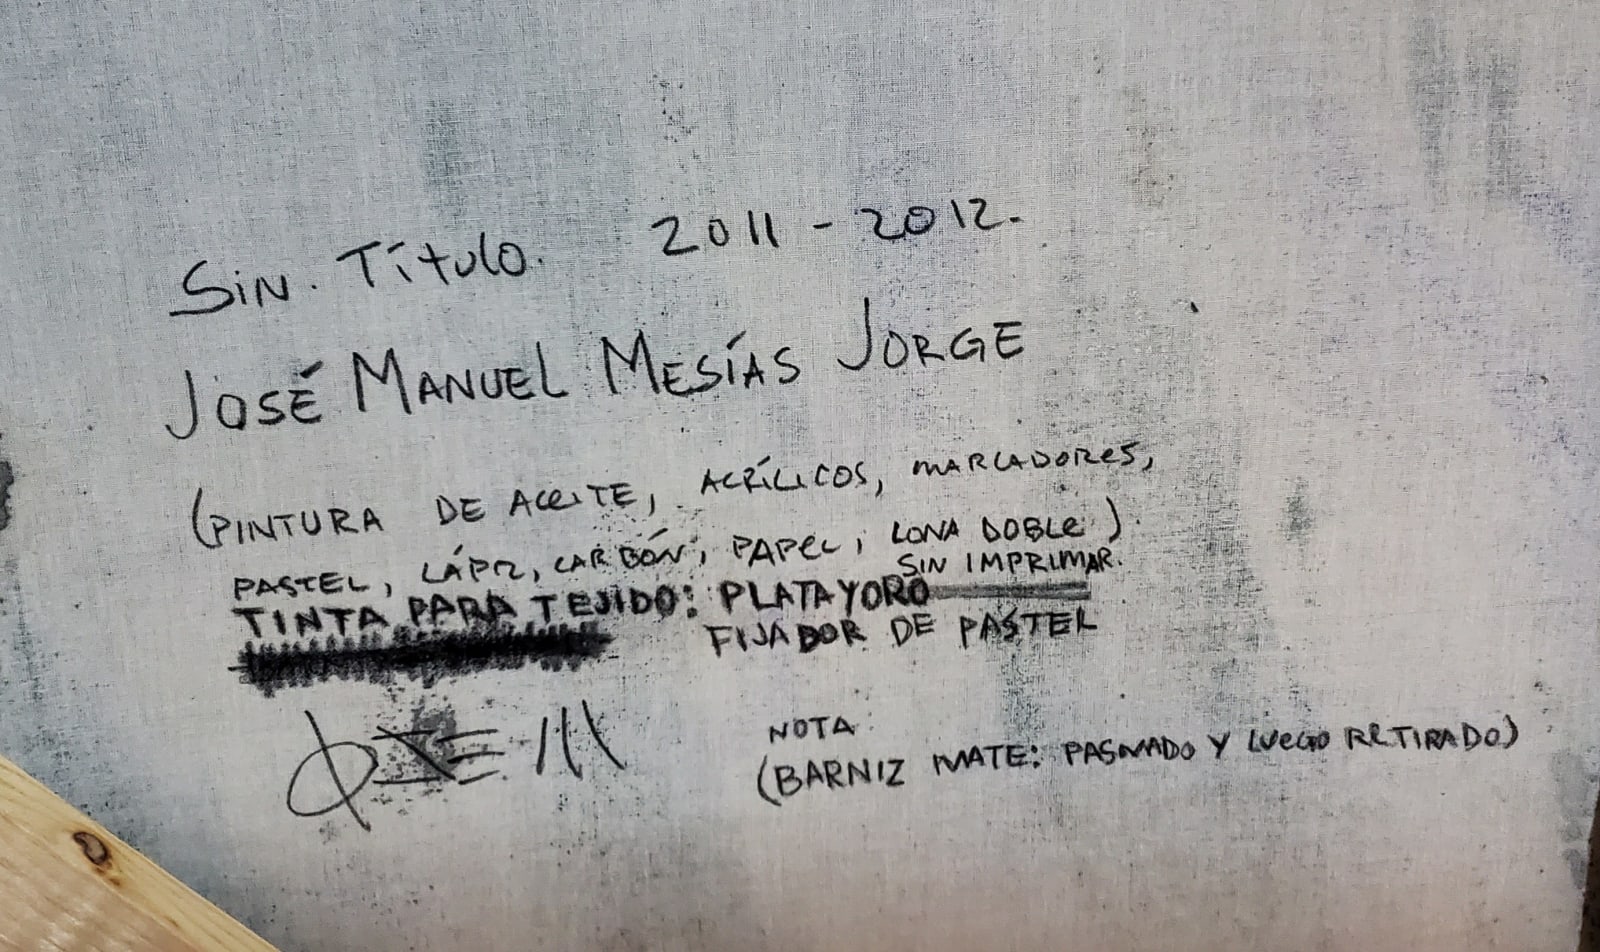 Sin. Título. 2011 - 2012.
JOSÉ MANUEL MESÍAS JORGE
(PINTURA DE ACEITE, ACRÍLICOS, MARCADORES,
PASTEL, LÁPIZ, CARBÓN, PAPEL, LONA DOBLE).
SIN IMPRIMAR.
TINTA PARA TEJIDO: PLATA Y ORO
FIJADOR DE PASTEL
NOTA:
(BARNIZ MATE: PASMADO Y LUEGO RETIRADO)